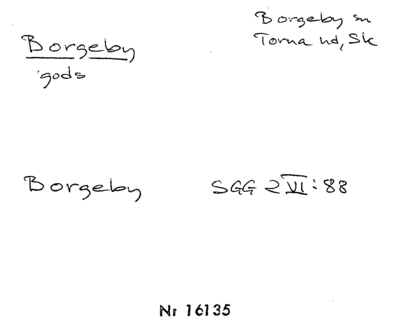 Borgeby
gods
Borgeby sn
Torna hd, Sk
Borgeby
SGG 2 VI: 88
Nr 16135